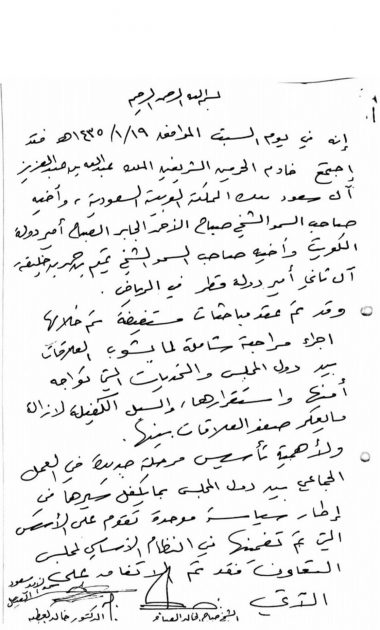 بسم الله الرحمن الرحيم
إنه في يوم السبت الموافق ١٤٣٥/١/١٩هـ فقد
إجتمع خادم الحرمين الشريفين الملك عبدالله بن عبدالعزيز
آل سعود ملك المملكة العربية السعودية، وأخيه
صاحب السمو الشيخ صباح الأحمد الجابر الصباح أمير دولة
الكويت وأخيه صاحب السمو الشيخ تميم بن حمد بن خليفة
آل ثاني أمير دولة قطر في الرياض.
وقد تم عقد مباحثات مستفيضة تم خلالها
اجراء مراجعة شاملة لما يشوب العلاقات
بين دول المجلس والتحديات التي تواجه
أمنها واستقرارها، والسبل الكفيلة لازالة
مايعكر صفو العلاقات بينها.
ولأهمية تأسيس مرحلة جديدة في العمل
الجماعي بين دول المجلس بما يكفل سيرها في
إطار سياسة موحدة تقوم على الأسس
التي تم تضمينها في النظام الأساسي لمجلس
التعاون فقد تم الاتفاق على
الآتي
سعود الفيصل
الشيخ صباح خالد الصباح
الدكتور خالد العطية